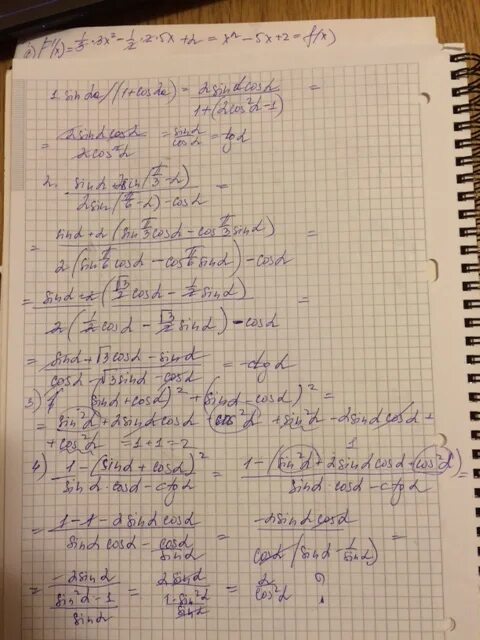 a) F'(x) = 1/3 · 3x² - 1/2 · 2 · 5x + 2 = x² - 5x + 2 = f(x)
1. sin2α/(1+cos2α) = 2sinα cosα / 1+(2cos²α-1) =
= 2sinα cosα / 2cos²α = sinα / cosα = tgα
2. sinα + 2sin(π/3 - α) / 2sin(π/6 - α) - cosα =
= sinα + 2(sin π/3 cosα - cos π/3 sinα) / 2(sin π/6 cosα - cos π/6 sinα) - cosα =
= sinα + 2(√3/2 cosα - 1/2 sinα) / 2(1/2 cosα - √3/2 sinα) - cosα =
= sinα + √3cosα - sinα / cosα - √3sinα - cosα = -ctgα
3) (sinα + cosα)² + (sinα - cosα)² =
= sin²α + 2sinα cosα + cos²α + sin²α - 2sinα cosα +
+ cos²α = 1 + 1 = 2
4) 1 - (sinα + cosα)² / sinα · cosα - ctgα = 1 - (sin²α + 2sinα cosα + cos²α) / sinα · cosα - ctgα =
1
= 1 - 1 - 2sinα cosα / sinα cosα - cosα/sinα = -2sinα cosα / cosα (sinα - 1/sinα) =
= -2sinα / sin²α - 1 / sinα = 2sinα / 1 - sin²α / sinα = 2 / cos²α ?